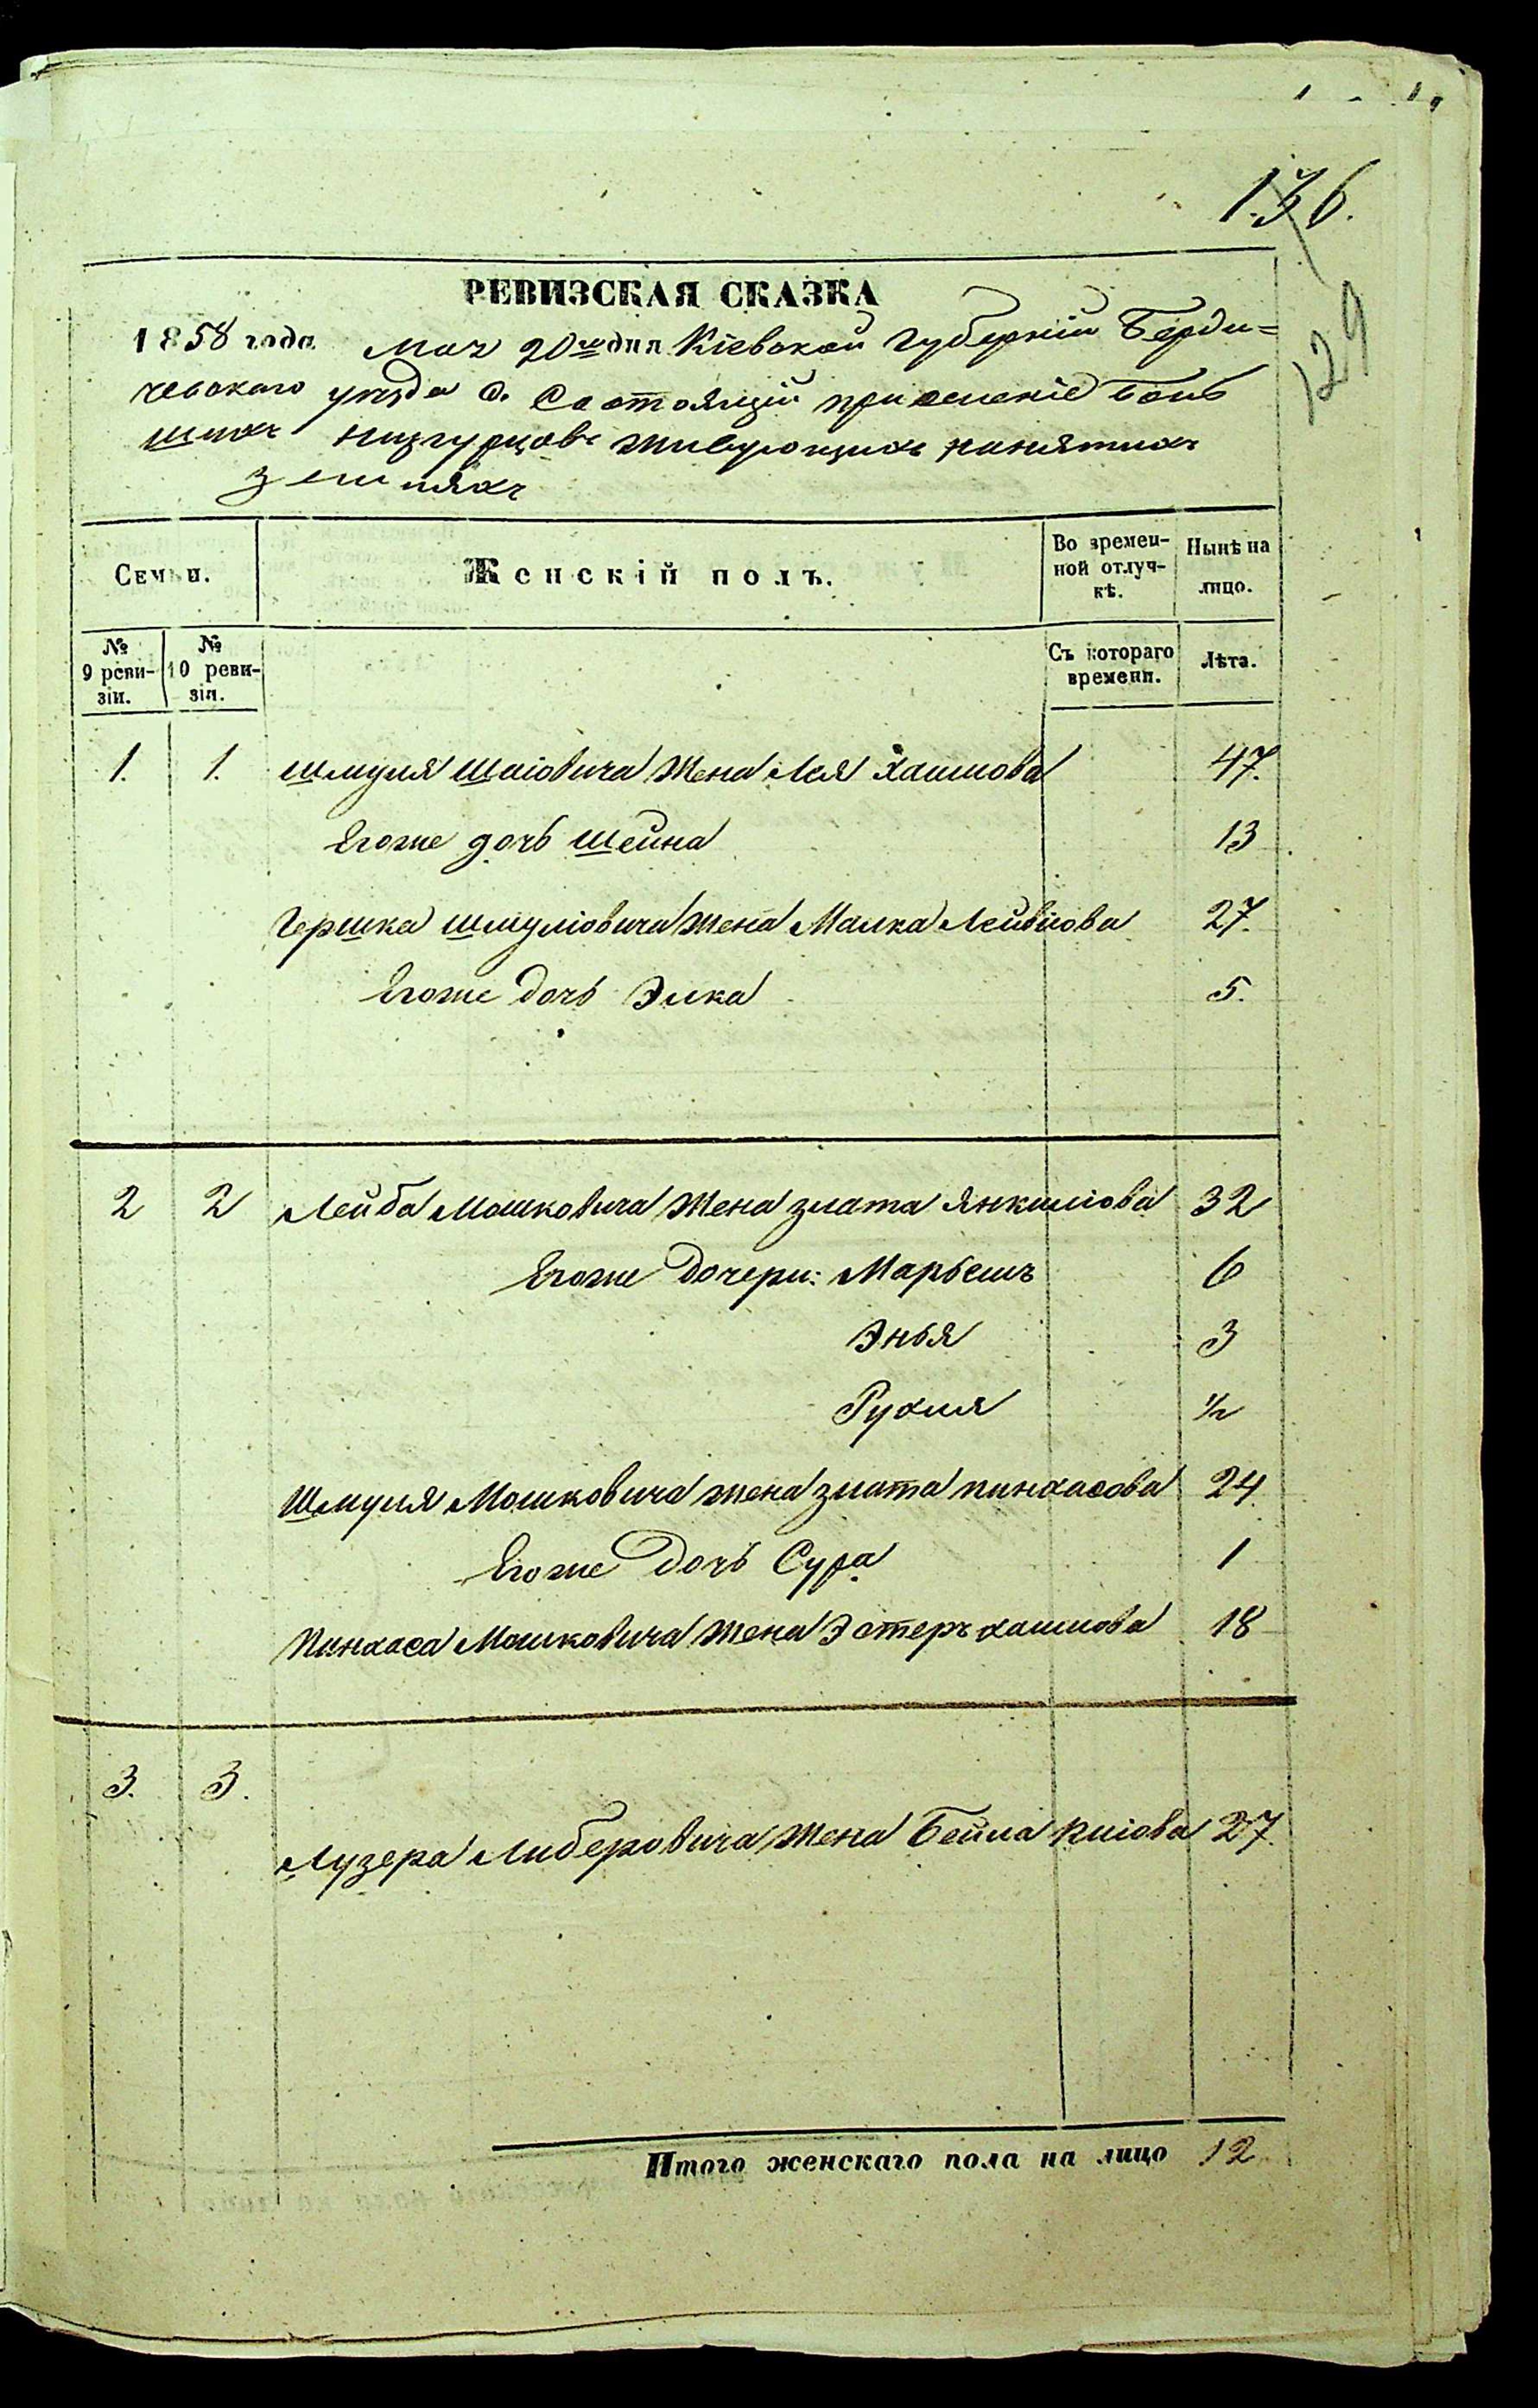 136.
129
РЕВИЗСКАЯ СКАЗКА
1858 года Мая 20го дня Кіевской Губерніи Берди=
чевскаго уезда О. Состоящій при селеніе Боль
шихъ Низгурцовъ жительующихъ нанятихъ
земляхъ
Семьи. Женскій полъ. Во времен-ной отлуч-кѣ. Нынѣ на лицо.
№ 9 реви-зіи. № 10 реви-зіи. Съ котораго времени. Лѣта.
1. 1. Шмуля Шаіовича жена Лея Хаимова 47.
Егоже дочь Шейна 13
Гершка Шмуліовича жена Малка Лейбіова 27.
Егоже дочь Элка 5.
2 2 Лейба Мошковича жена Злата Янкиліова 32
Егоже дочери: Марьемъ 6
Энья 3
Рухля 1/2
Шмуля Мошковича жена Злата Пинхасова 24
Егоже дочь Сура 1
Пинхаса Мошковича жена Эстеръ Хаимова 18
3. 3.
Лузера Либеровича жена Бейла Киіова 27.
Итого женскаго пола на лицо 12